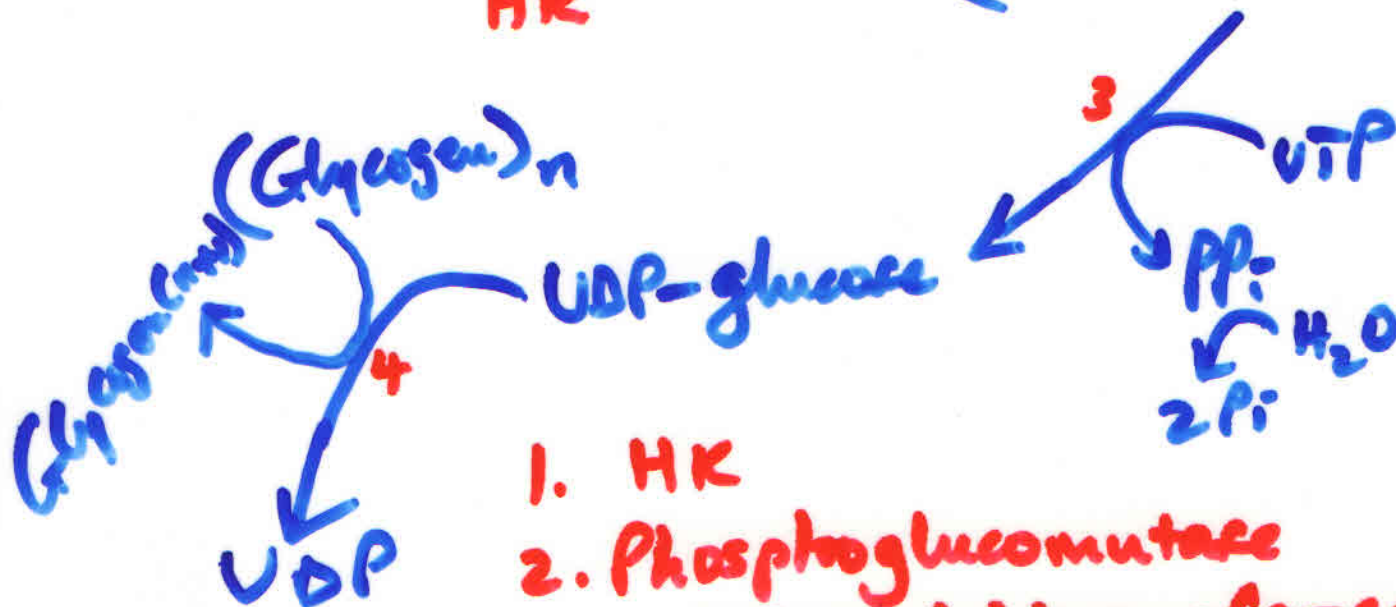 HK
3
(Glycogen)n
UTP
Glycogen(n+1)
UDP-glucose
PPi
H2O
4
2 Pi
1. HK
UDP
2. Phosphoglucomutase